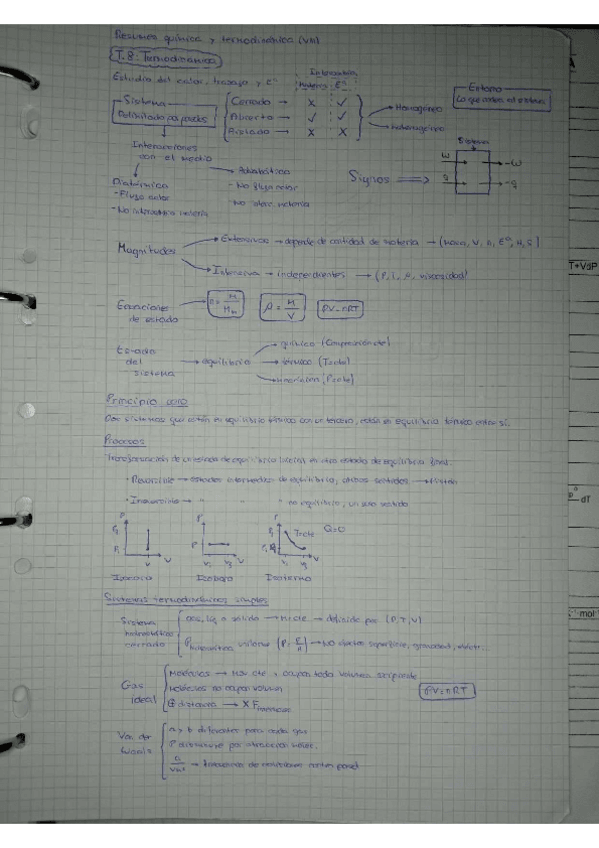 Resumen química y termodinámica (VIII)
T.8: Termodinámica
Estudio del calor, trabajo y Eª
Intercambia
Materia Eª
Sistema
Delimitado por paredes
Cerrado → X ✓
Abierto → ✓ ✓
Aislado → X X
Homogéneo
Heterogéneo
Entorno
Lo que rodea al sistema
Interacciones
con el medio
Diatérmica
- Flujo calor
- No intercambia materia
Adiabática
- No flujo calor
- No interc. materia
Signos ⟹
Sistema
W
-W
q
-q
Magnitudes
Extensivas → depende de cantidad de materia → (Masa, V, n, Eª, H, S)
Intensiva → independientes → (P, T, ρ, viscosidad)
Ecuaciones
de estado
n = M/Mm
ρ = M/V
PV = nRT
Estado
del
sistema
→ equilibrio
químico (Composición cte)
térmico (T cte)
mecánico (P cte)
Principio cero
Dos sistemas que están en equilibrio térmico con un tercero, están en equilibrio térmico entre sí.
Procesos
Transformación de un estado de equilibrio inicial en otro estado de equilibrio final.
· Reversible → estados intermedios de equilibrio, ambos sentidos
· Irreversible → " " no equilibrio, un solo sentido
P
V
P
V
P
V
T cte
Q=0
Isocora
Isobara
Isoterma
Sistemas termodinámicos simples
Sistema
hidrostático
cerrado
Gas, líq o sólido → M cte → definido por (P, T, V)
→ No efectos superficie, gravedad, eléctr...
Gas
ideal
Moléculas → Mov. cte y ocupan todo volumen recipiente
Moléculas no ocupan volumen
distancia → X F
PV = nRT
Van der
Waals
a y b diferentes para cada gas
P disminuye por atracción molec.